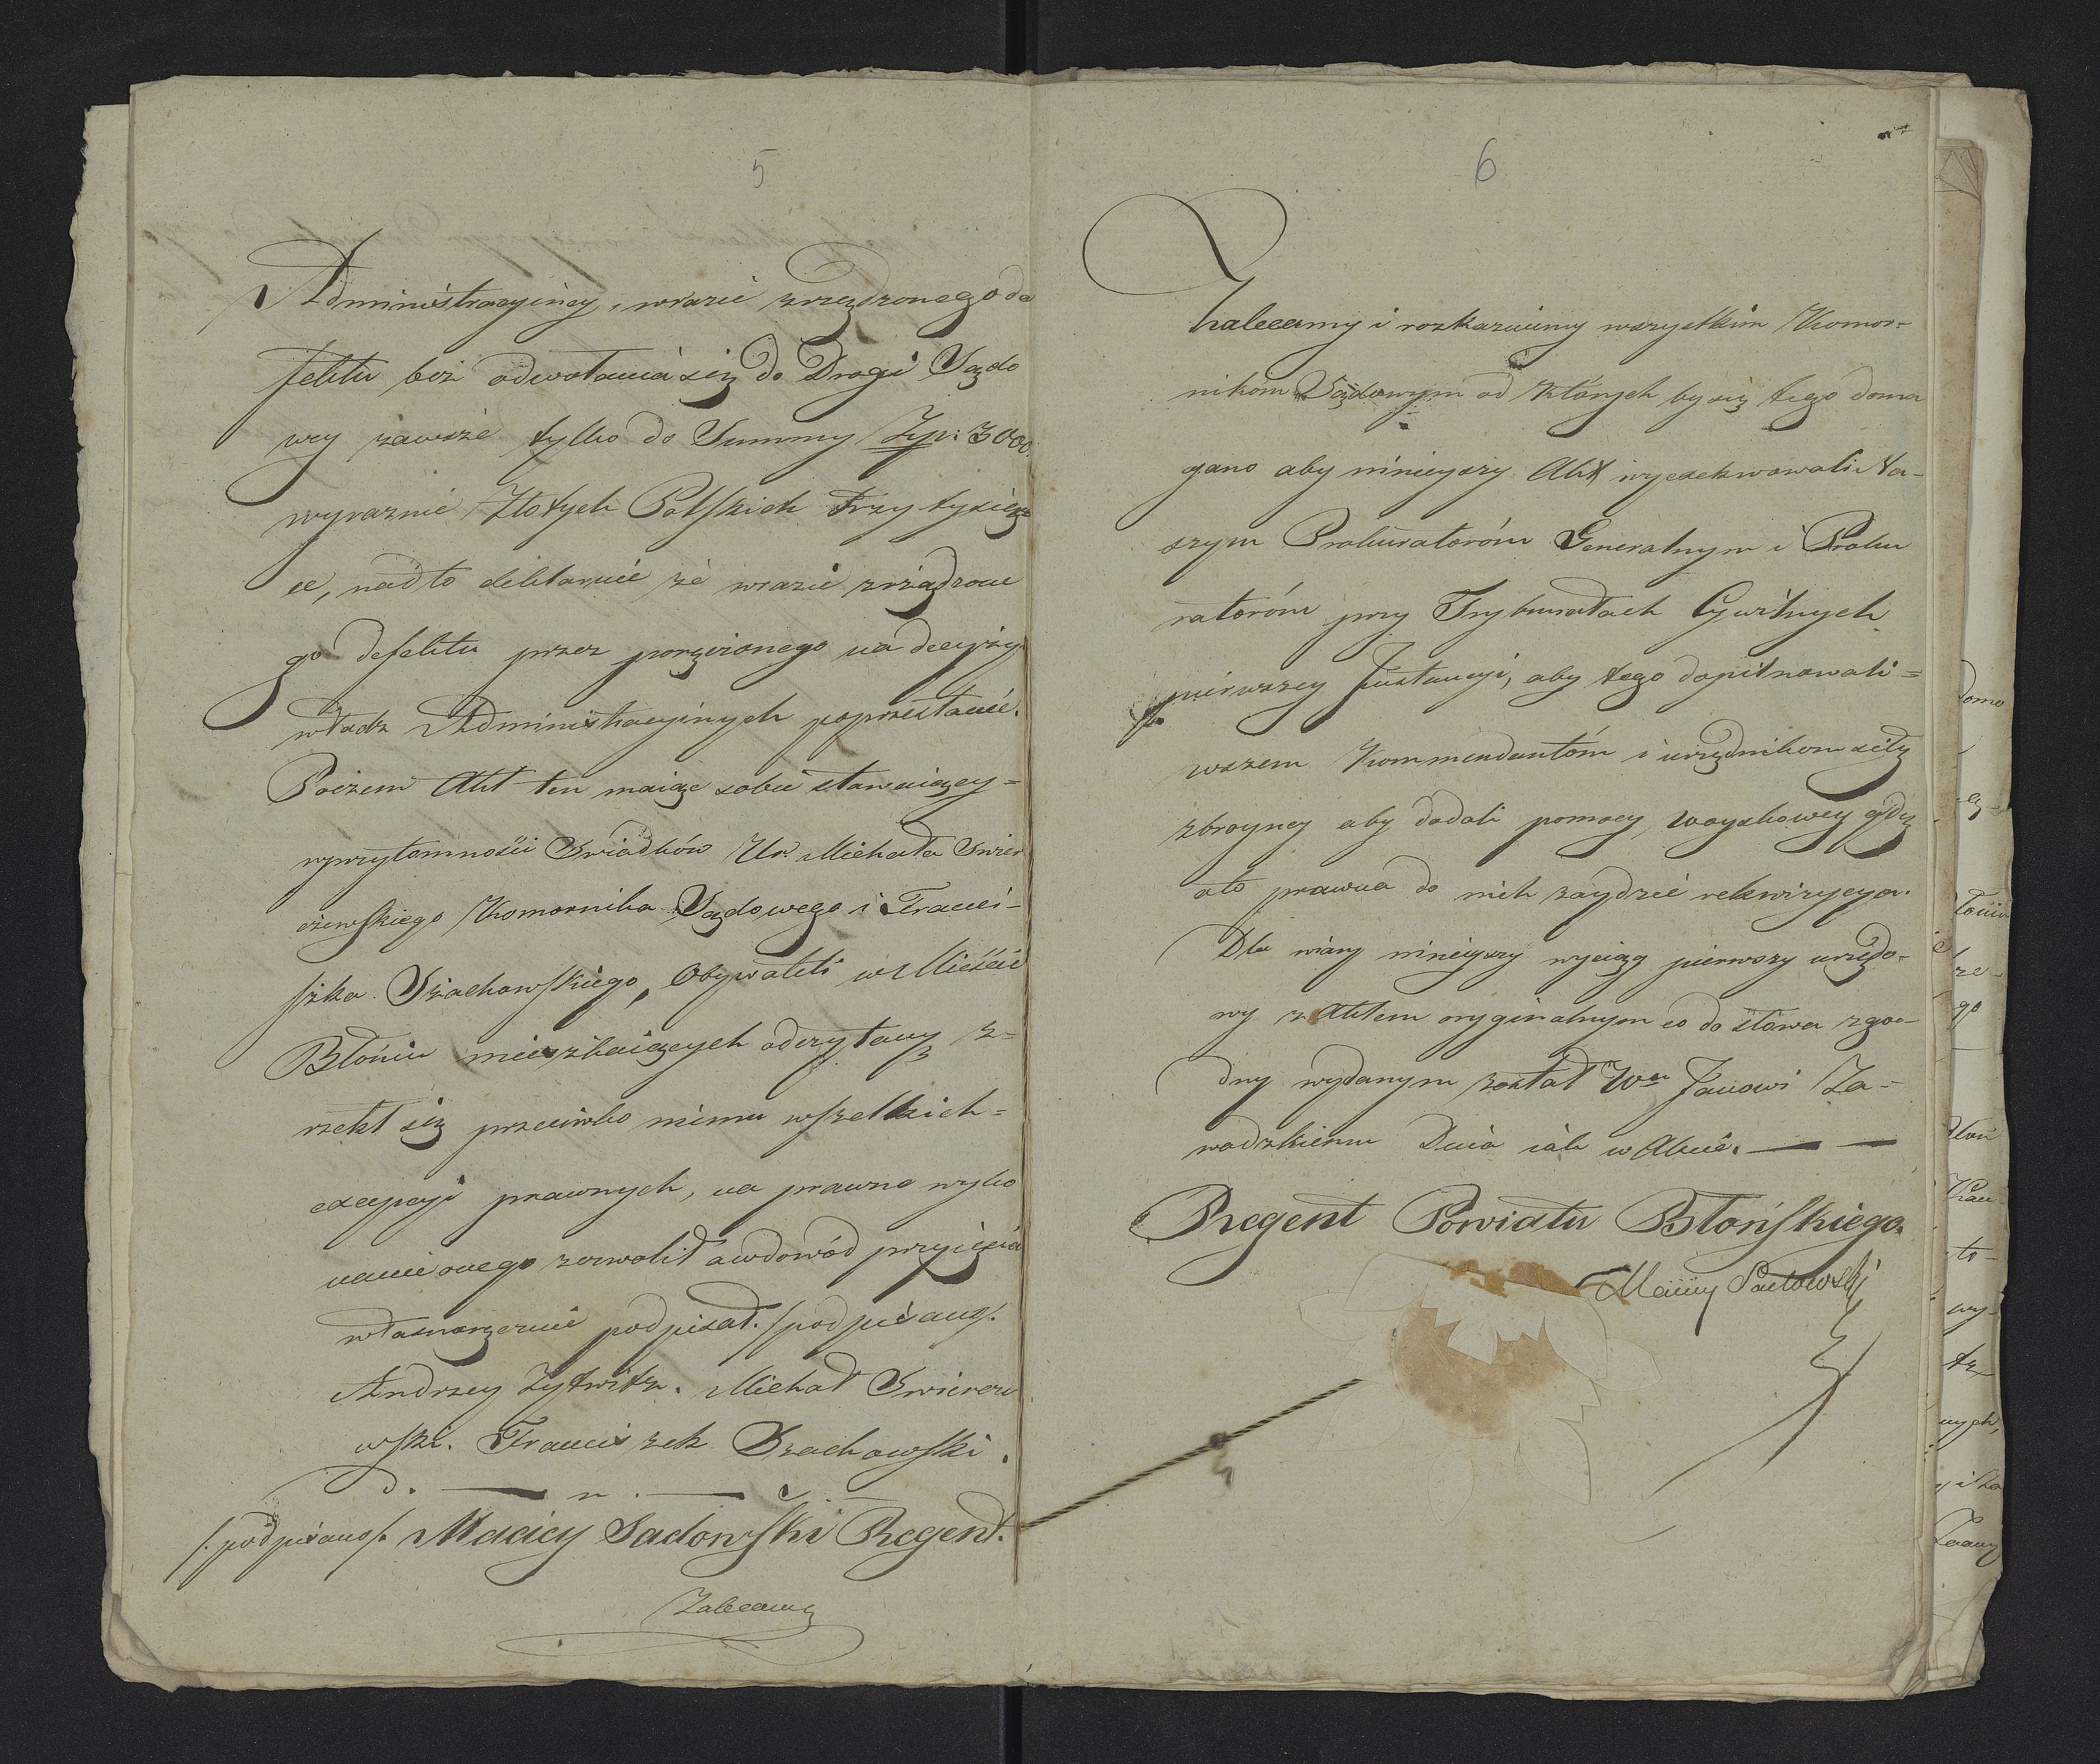 5
Administracyiney, wrazie zrządzonego de
fektu bez odwołania się do Drogi Sądo
wey zawsze tylko do Summy Złp: 3000.
wyraznie Złotych Polskich trzy tysią
ce, nadto deklaruie że wrazie zrządzone
go defektu przez poręczonego na decyzyi
władz Administracyinych poprzestanie.
Poczem Akt ten maiąc sobie stawaiący=
wprzytomności Swiadków Ur. Michała Swier
czewskiego Komornika Sądowego i Franci-
szka Szachowskiego, Obywateli w Mieście
Błoniu mieszkaiących odczytany z=
rzekł się przeciwko niemu wszelkich=
excepcyi prawnych, na prawne wyko
nanie onego zezwolił a w dowód przyięcia
własnoręcznie podpisał. /podpisano/.
Andrzey Zytwitz. Michał Swiercze
wski. Franciszek Szachowski.
/. podpisano/. Maciey Sadowski Regent.
Zalecamy
6
Zalecamy i rozkazuiemy wszystkim Komor-
nikom Sądowym od których by się tego doma
gano aby ninieyszy Akt wyexekwowali Na-
szym Prokuratoróm Generalnym i Proku
ratoróm przy Trybunałach Cywilnych
pierwszey Instancyi, aby tego dopilnowali=
wszem Kommendantóm i urzędnikom siły
zbroyney aby dodali pomocy woyskowey gdy
oto prawna do nich zaydzie rekwizycya.
Dla wiary ninieyszy wyciąg pierwszy urzędo-
wy z Aktem oryginalnym co do słowa zgo-
dny wydanym został Wmu Janowi Za-
wadzkiemu Dnia iak w Akcie. — —
Regent Powiatu Błońskiego.
Maciey Sadowski